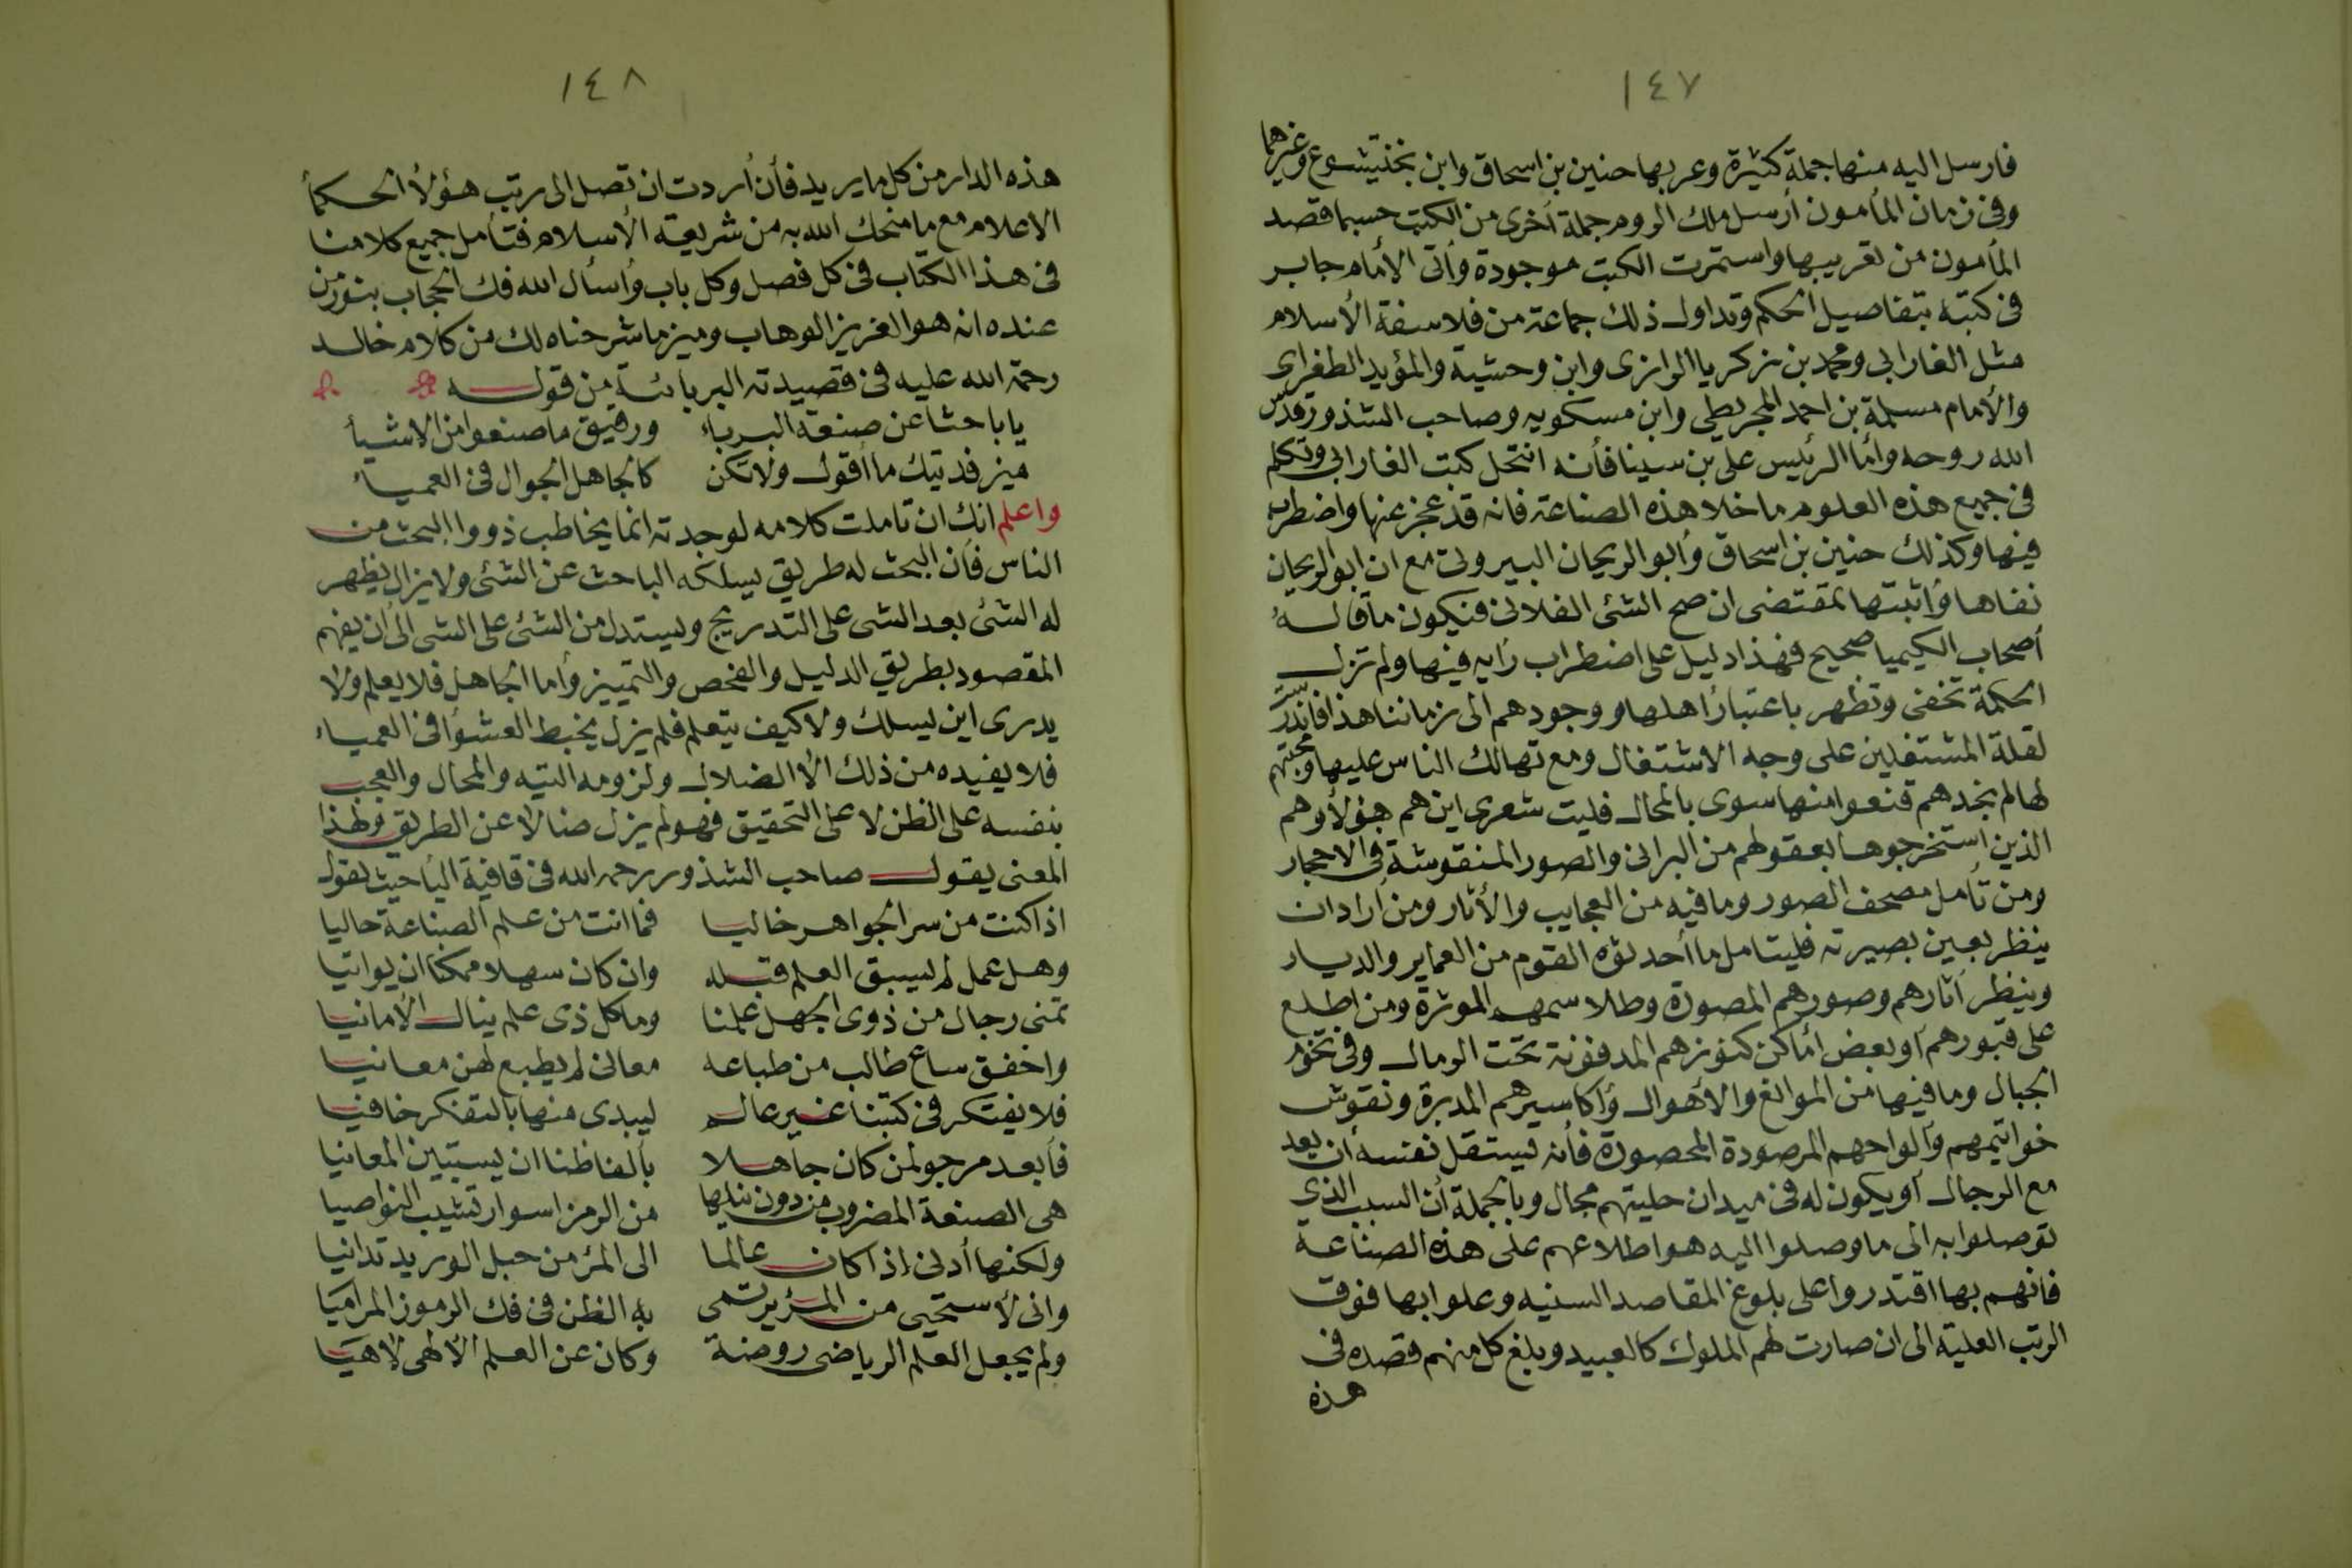 ١٤٧
فارسل اليه منها جملة كثيرة وعربها حنين بن اسحاق وابن بختيشوع وغيرهما
وفى زمان المأمون أرسل ملك الروم جملة أخرى من الكتب حسبما قصد
المأمون من تعريبها واستمرت الكتب موجودة وأتى الأمام جابر
فى كتبه بتفاصيل الحكم وتداول ذلك جماعة من فلاسفة الأسلام
مثل الفارابي ومحمد بن زكريا الرازى وابن وحشية والمؤيد الطغراى
والأمام مسلمة بن احمد المجريطي وابن مسكويه وصاحب الشذور قدس
الله روحه وأما الرئيس على بن سينا فأنه انتحل كتب الفارابى وتكلم
فى جميع هذه العلوم ما خلا هذه الصناعة فانه قد عجز عنها واضطرب
فيها وكذلك حنين بن اسحاق وأبو الريحان البيرونى مع ان ابو الريحان
نفاها وأثبتها بمقتضى ان صح الشئ الفلانى فيكون ما قاله
أصحاب الكيميا صحيح فهذا دليل على اضطراب رأيه فيها ولم تزل
الحكمة تخفى وتظهر باعتبار أهلها ووجودهم الى زماننا هذا فاندرست
لقلة المشتغلين على وجه الاشتغال ومع تهالك الناس عليها ومحبتهم
لها لم نجدهم قنعوا منها سوى بالمحال فليت شعرى اين هم هؤلاء وهم
الذين استخرجوها بعقولهم من البرانى والصور المنقوشة فى الاحجار
ومن تأمل مصحف الصور وما فيه من العجايب والأثار ومن أراد ان
ينظر بعين بصيرته فليتامل ما أحدثوه القوم من العماير والديار
وينظر أثارهم وصورهم المصورة وطلاسمهم الموثرة ومن اطلع
على قبورهم أو بعض أماكن كنوزهم المدفونة تحت الرمال وفى تخوم
الجبال وما فيها من الموانع والأهوال وأكاسيرهم المدبرة ونقوش
خواتيمهم وألواحهم المرصودة المحصورة فأنه ليستقل نفسه أن يعد
مع الرجال أو يكون له فى ميدان حليتهم مجال وبالجملة أن السبب الذى
توصلوا به الى ما وصلوا اليه هو اطلاعهم على هذه الصناعة
فانهم بها اقتدروا على بلوغ المقاصد السنيه وعلوا بها فوق
الرتب العلية الى ان صارت لهم الملوك كالعبيد وبلغ كل منهم قصده فى
هذه
١٤٨
هذه الدار من كل ما يريد فأن أردت ان تصل الى رتب هؤلأ الحكمأ
الاعلام مع ما منحك الله به من شريعة الأسلام فتأمل جميع كلامنا
فى هذا الكتاب فى كل فصل وكل باب وأسأل الله فك الحجاب بنور من
عنده انه هو العزيز الوهاب وميز ما شرحناه لك من كلام خالد
رحمة الله عليه فى قصيدته البربائية من قوله
يا باحثا عن صنعة البرباء ورقيق ما صنعوا من الاشيأ
ميز فديتك ما أقول ولا تكن كالجاهل الجوال فى العمياء
واعلم انك ان تاملت كلامه لوجدته انما يخاطب ذووا البحث من
الناس فأن البحث له طريق يسلكه الباحث عن الشئ ولا يزال يظهر
له الشئ بعد الشى على التدريج ويستدل من الشئ على الشى الى أن يفهم
المقصود بطريق الدليل والفحص والتمييز وأما الجاهل فلا يعلم ولا
يدرى اين يسلك ولا كيف يتعلم فلم يزل يخبط العشوأ فى العمياء
فلا يفيده من ذلك الأ الضلال ولزومه التيه والمحال والعجب
بنفسه على الظن لا على التحقيق فهو لم يزل ضالا عن الطريق ولهذا
المعنى يقول صاحب الشذور رحمه الله فى قافية الياحيث يقول
اذا كنت من سر الجواهر خاليا فما انت من علم الصناعة حاليا
وهل عمل لم يسبق العلم قبله وان كان سهلا ممكنا ان يواتيا
تمنى رجال من ذوى الجهل علمنا وما كل ذى علم ينال الأمانيا
واخفق ساع طالب من طباعه معانى لم يطبع لهن معانيا
فلا يفتكر فى كتبنا غير عالم ليبدى منها بالتفكر خافيا
فأبعد مرجو لمن كان جاهلا بألفاظنا ان يستبين المعانيا
هى الصنعة المضروب من دون نيلها من الرمز اسوار تشيب النواصيا
ولكنها أدنى إذا كان عالما الى المرء من حبل الوريد تدانيا
وانى لأستحيى من المرء يرتمى به الظن فى فك الرموز المراميا
ولم يجعل العلم الرياضى روضة وكان عن العلم الألهى لاهيا